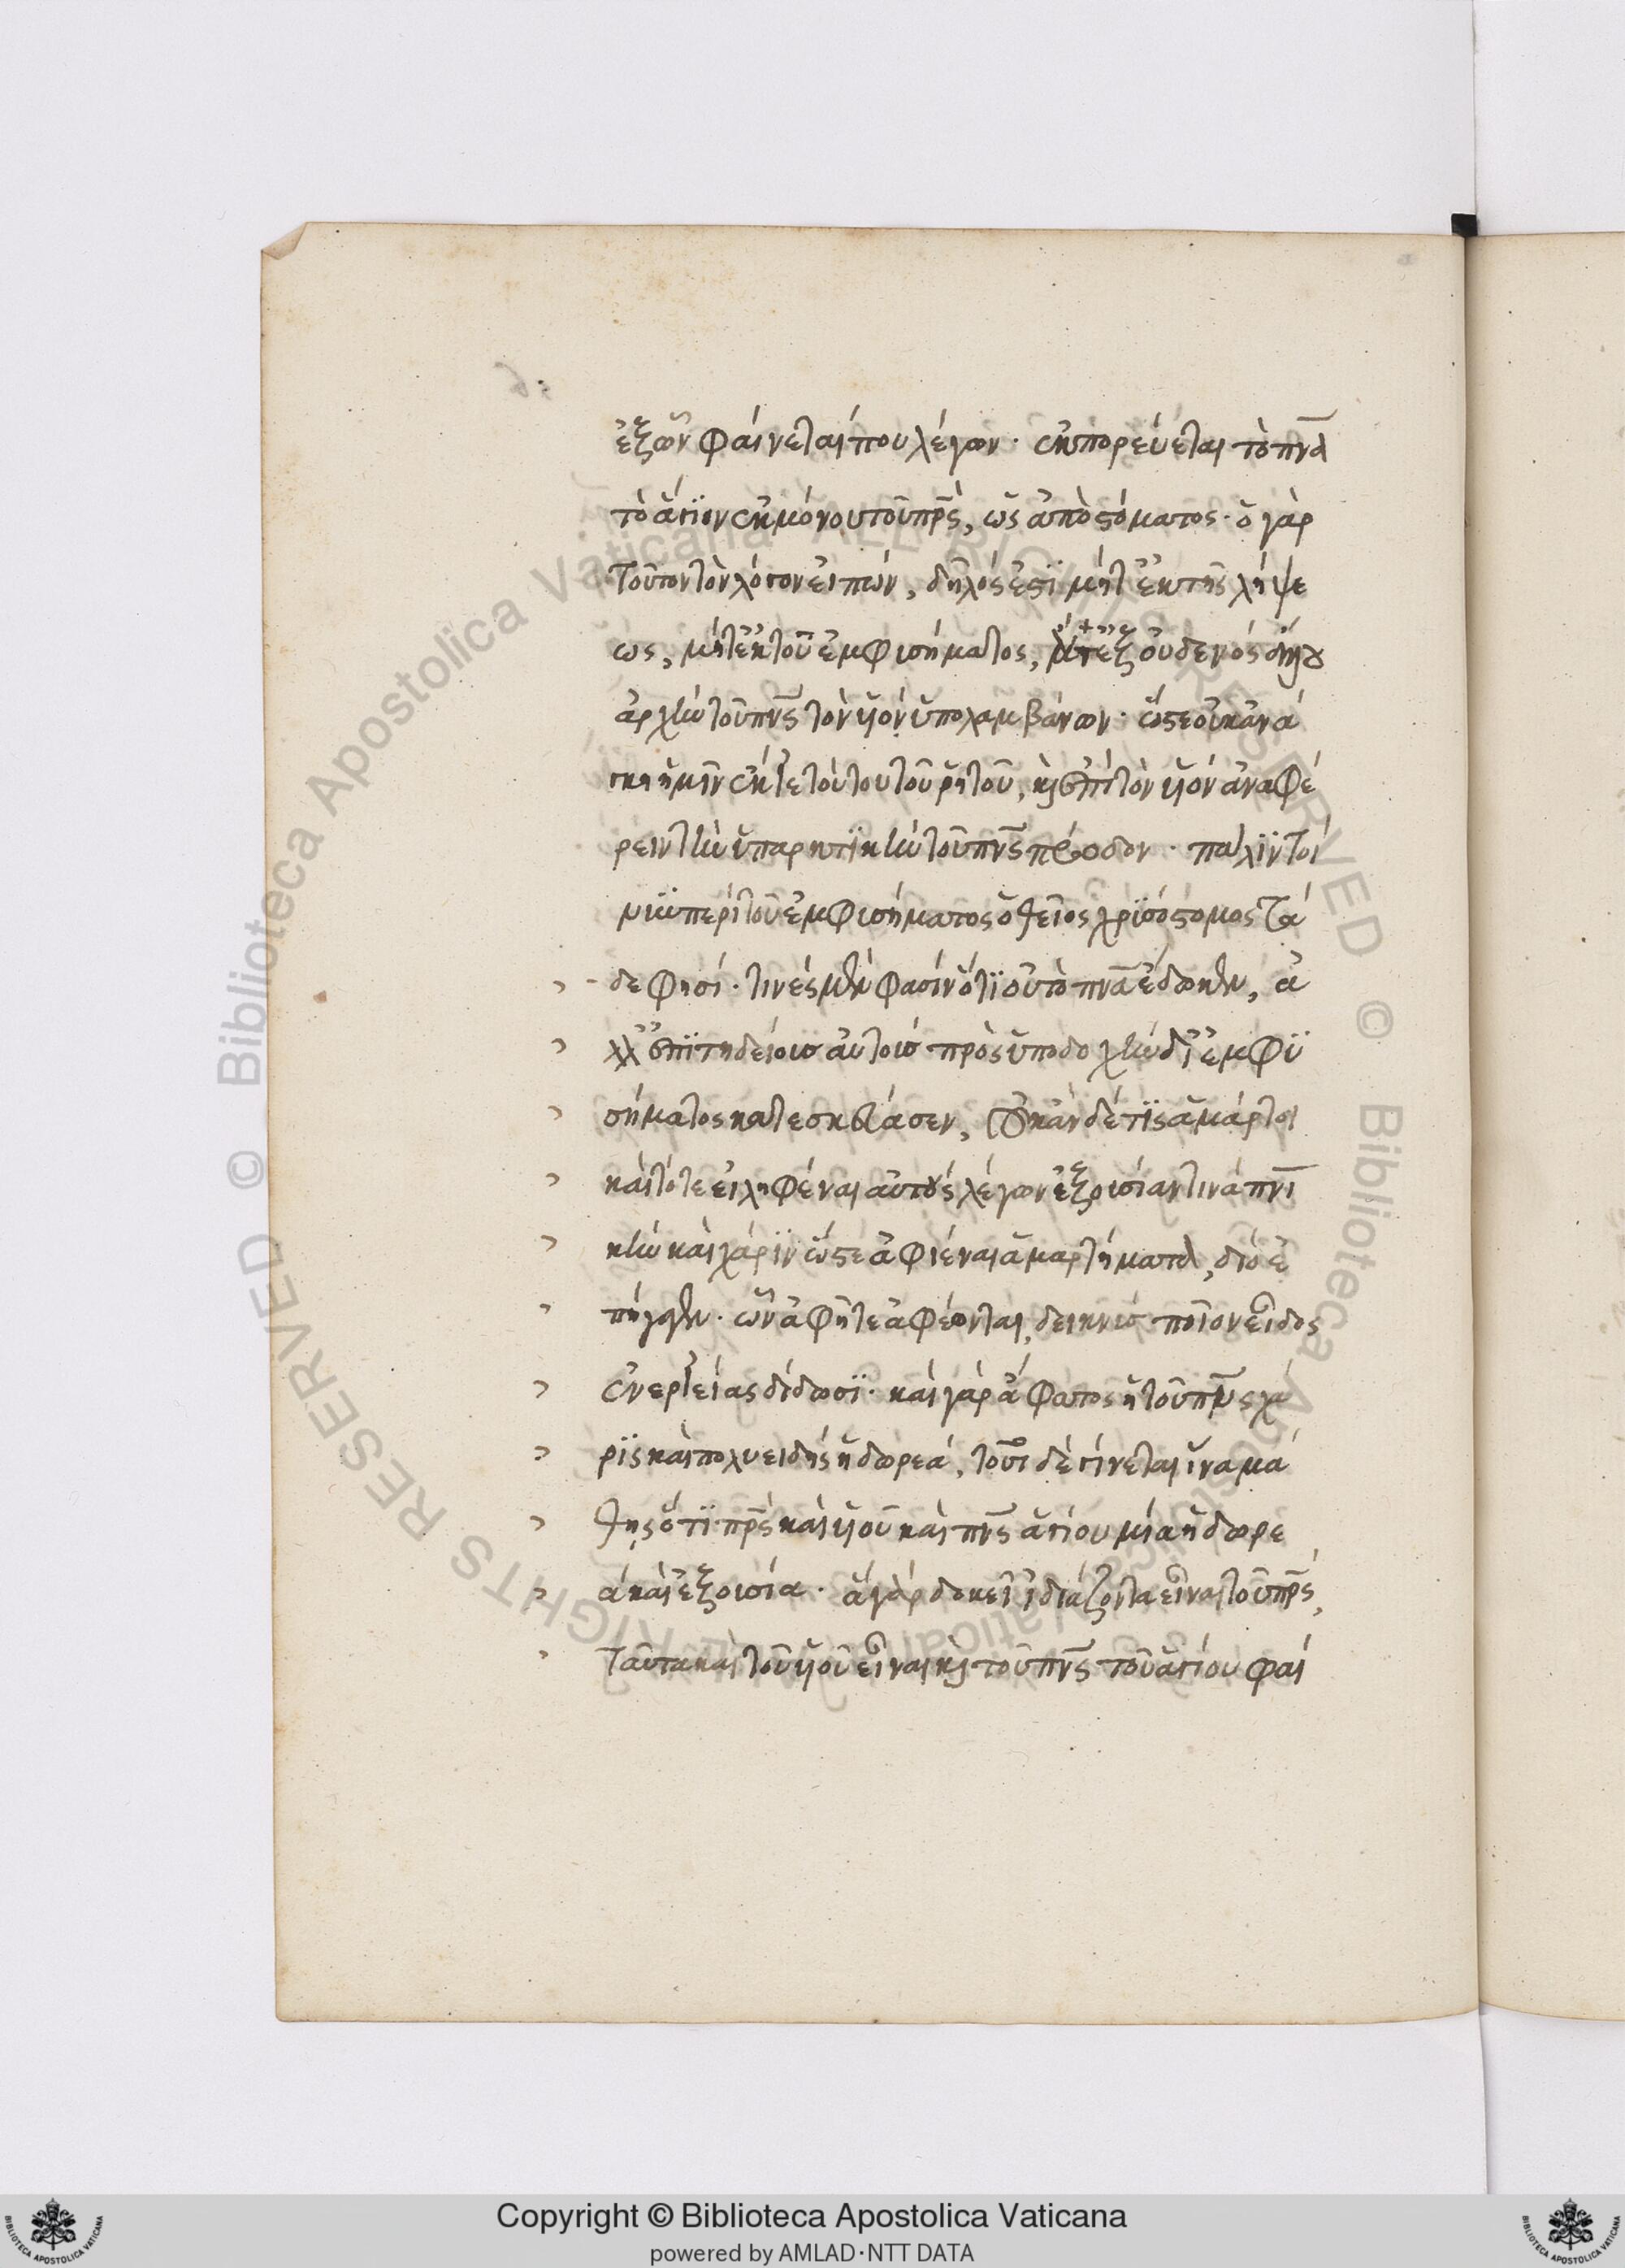 ἐξ ὧν φαίνεταί που λέγων · ἐκπορεύεται τὸ πνα
τὸ ἅγϊον ἐκ μόνου τοῦ πρς, ὡς ἀπὸ στόματος · ὁ γὰρ
τοῦτον τὸν λόγον εἰπών, δῆλός ἐστϊ μήτ ἐκ τῆς λήψε
ως, μήτ ἐκ τοῦ ἐμφυσήματος, μήτ ἐξ οὐδενός
ἀρχὴν τοῦ πνς τὸν υἱὸν ὑπολαμβάνων · ὥστε οὐκ ἀνά
γκη ἡμῖν ἔκ γε τούτου τοῦ ῥητοῦ, κὶ ἐπὶ τὸν υἱὸν ἀναφέ
ρειν τὴν ὑπαρκτϊκὴν τοῦ πνς πρόοδον · πάλϊν τοί
νυν περὶ τοῦ ἐμφυσήματος ὁ θεῖος χρϊσόστομος τά
δε φησί · τινὲς μὲν φασὶν ὅτϊ οὐ τὸ πνα ἔδωκεν, ἀ
λλ ἐπϊτηδείους αὐτοὺς πρὸς ὑποδοχὴν δι ἐμφϋ
σήματος κατεσκεύασεν, οὐκ ἂν δέ τϊς ἁμάρτοι
καὶ τότε εἰληφέναι αὐτοὺς λέγων ἐξουσίαν τινὰ πνι
κὴν καὶ χάρϊν ὥστε ἀφιέναι ἁμαρτήματα, διὸ ἐ
πήγαγεν · ὧν ἀφῆτε ἀφέονται, δεικνὺς ποῖον εἶδος
ἐνεργείας δίδωσϊ · καὶ γὰρ ἄφατος ἡ τοῦ πνς χά
ρϊς καὶ πολυειδὴς ἡ δωρεά, τοῦτο δὲ γίνεται ἵνα μά
θῃς ὅτϊ πρς καὶ υἱοῦ καὶ πνς ἁγίου μία ἡ δωρε
ά καὶ ἐξουσία · ἃ γὰρ δοκεῖ ἰδιάζοντα εἶναι τοῦ πρς,
ταῦτα καὶ τοῦ υἱοῦ εἶναι κὶ τοῦ πνς τοῦ ἁγίου φαί
Copyright © Biblioteca Apostolica Vaticana
powered by AMLAD·NTT DATA